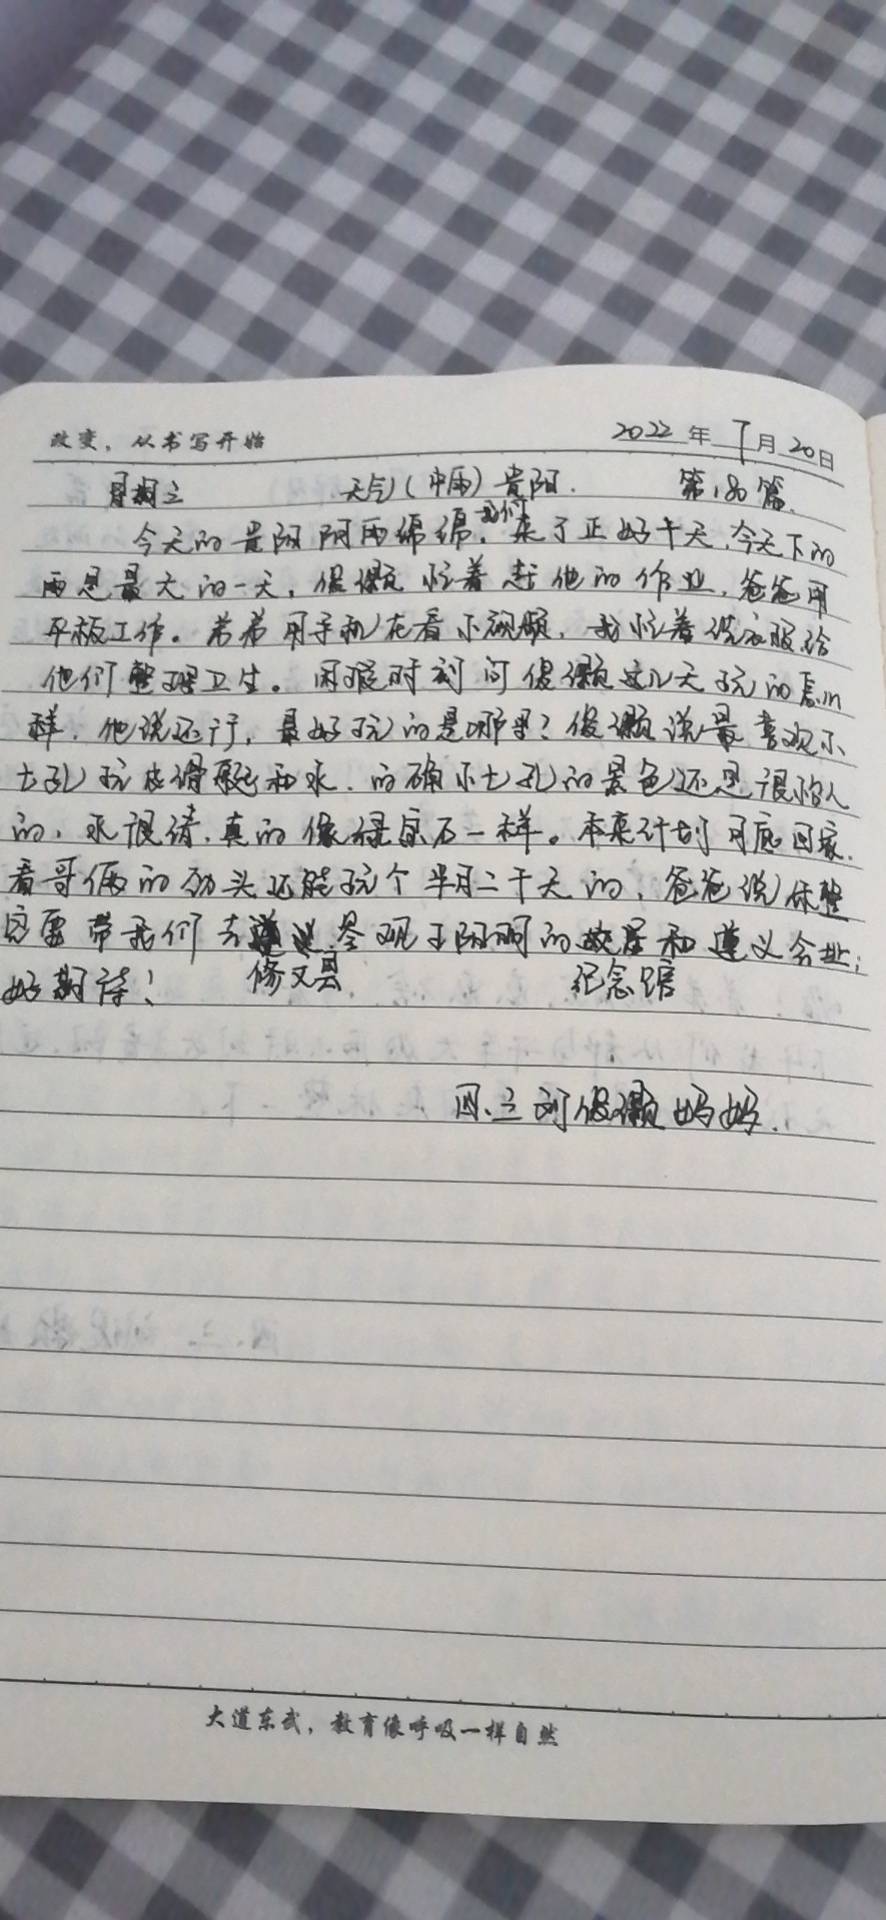 改变，从书写开始 2022年7月20日
星期三 天气(中雨) 贵阳. 第180篇.
今天的贵阳阴雨绵绵,我们来了正好十天,今天下的
雨是最大的一天,俊灏忙着赶他的作业,爸爸用
平板工作。弟弟用手机在看小视频,我忙着洗衣服给
他们整理卫生。闲暇时刻问俊灏这几天玩的怎么
样,他说还行,最好玩的是哪里?俊灏说最喜欢小
七孔玩皮滑艇和水.的确小七孔的景色还是很怡人
的,水很清,真的像绿宝石一样。本来计划月底回家.
看哥俩的劲头还能玩个半月二十天的,爸爸说休整
完要带我们去修文县参观王阳明的故居和遵义会址纪念馆;
好期待!
四.三刘俊灏妈妈.
大道东武，教育像呼吸一样自然